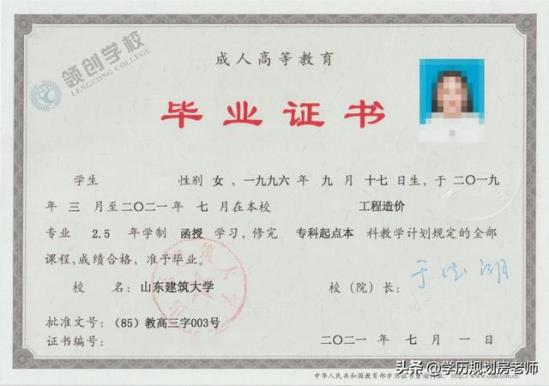 领创学校
LENGCONG COLLEGE
成人高等教育
毕业证书
学生 性别 女 ，一九九六 年 九 月 十七 日生，于 二〇一九
年 三 月至 二〇二一 年 七 月在本校 工程造价
专业 2.5 年学制 函授 学习，修完 专科起点本 科教学计划规定的全部
课程，成绩合格，准予毕业。
校 名：山东建筑大学 校（院）长：
批准文号：（85）教高三字003号
证书编号： 二〇二一 年 七 月 一 日
头条 @学历规划房老师